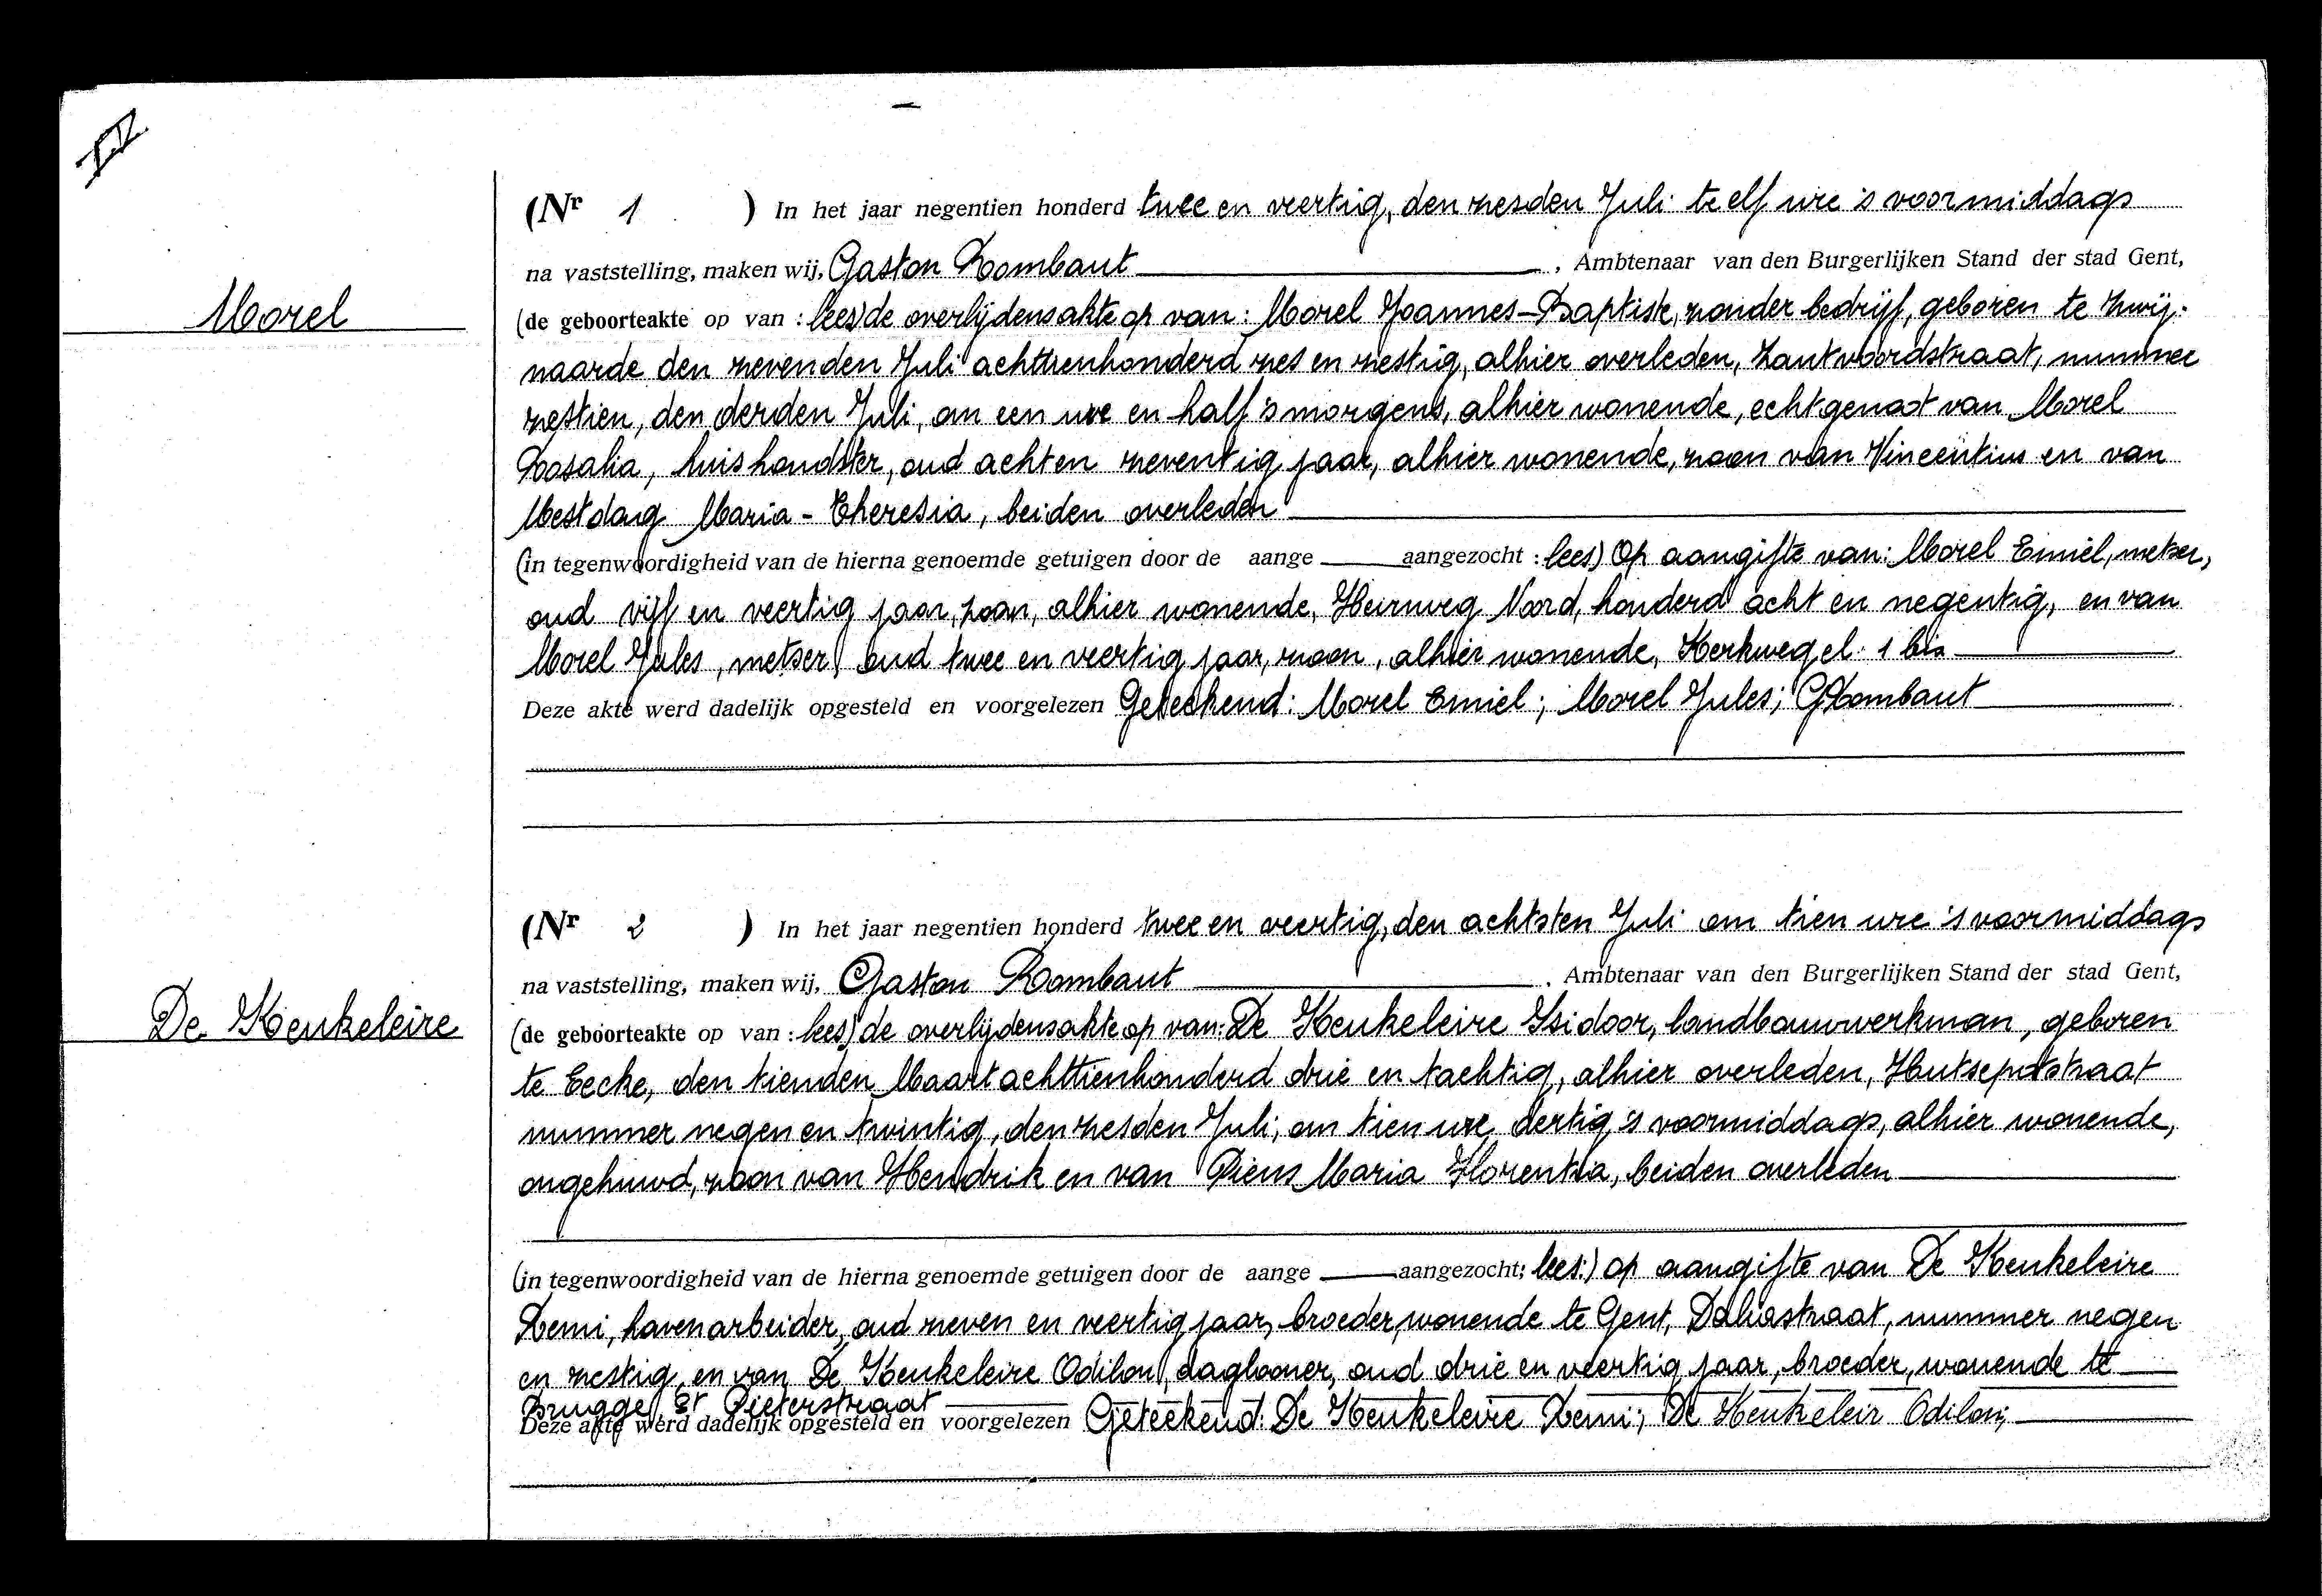 II
(Nr 1 ) In het jaar negentien honderd twee en veertig, den zesden Juli te elf ure 's voormiddags
na vaststelling, maken wij, Gaston Rombaut, Ambtenaar van den Burgerlijken Stand der stad Gent,
Morel
(de geboorteakte op van : lees) de overlijdensakte op van: Morel Joannes-Baptiste, zonder bedrijf, geboren te Zwij-
naarde den zevenden Juli achttienhonderd zes en zestig, alhier overleden, Zantvoordstraat, nummer
zestien, den derden Juli, om een ure en half 's morgens, alhier wonende, echtgenoot van Morel
Rosalia, huishoudster, oud acht en zeventig jaar, alhier wonende, zoon van Vincentius en van
Mestdag Maria-Theresia, beiden overleden
(in tegenwoordigheid van de hierna genoemde getuigen door de aange aangezocht : lees) Op aangifte van: Morel Emiel, metser,
oud vijf en veertig jaar, zoon, alhier wonende, Heirweg Noord, honderd acht en negentig, en van
Morel Jules, metser, oud twee en veertig jaar, zoon, alhier wonende, Kerkwegel 1 bis
Deze akte werd dadelijk opgesteld en voorgelezen Geteekend: Morel Emiel; Morel Jules; GRombaut
(Nr 2 ) In het jaar negentien honderd twee en veertig, den achtsten Juli om tien ure 's voormiddags
na vaststelling, maken wij, Gaston Rombaut, Ambtenaar van den Burgerlijken Stand der stad Gent,
De Keukeleire
(de geboorteakte op van : lees) de overlijdensakte op van: De Keukeleire Isidoor, landbouwwerkman, geboren
te Eecke, den tienden Maart achttienhonderd drie en tachtig, alhier overleden, Hutsepotstraat
nummer negen en twintig, den zesden Juli, om tien ure dertig 's voormiddags, alhier wonende,
ongehuwd, zoon van Hendrik en van Piens Maria Florentia, beiden overleden
(in tegenwoordigheid van de hierna genoemde getuigen door de aange aangezocht: lees:) op aangifte van De Keukeleire
Remi, havenarbeider, oud zeven en veertig jaar, broeder, wonende te Gent, Daliastraat, nummer negen
en zestig, en van De Keukeleire Odilon, daglooner, oud drie en veertig jaar, broeder, wonende te
Brugge, St Pieterstraat
Deze akte werd dadelijk opgesteld en voorgelezen Geteekend: De Keukeleire Remi; De Keukeleir Odilon;